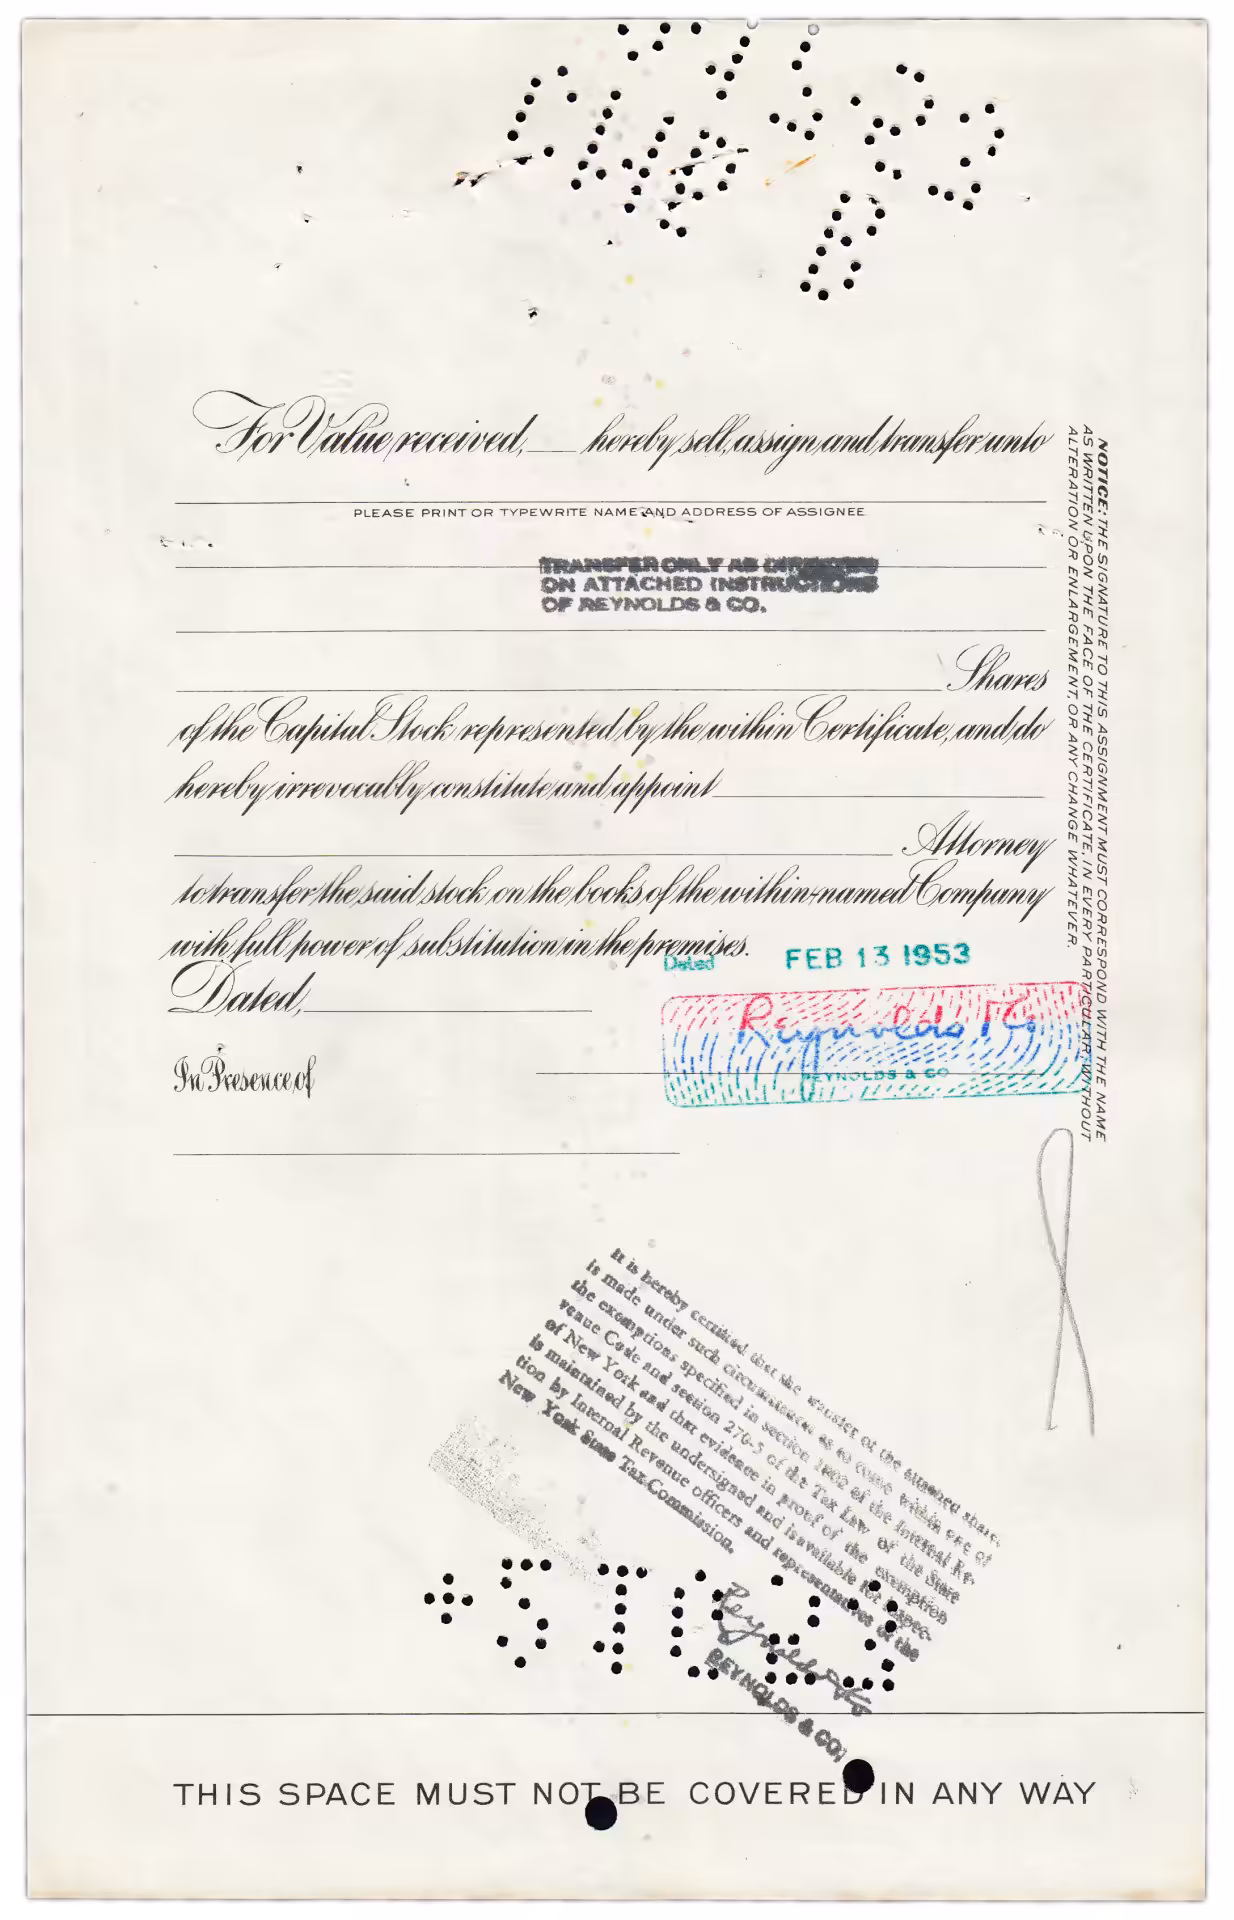 For Value received, ___ hereby sell, assign and transfer unto
PLEASE PRINT OR TYPEWRITE NAME AND ADDRESS OF ASSIGNEE
TRANSFER ONLY AS DIRECTED
ON ATTACHED INSTRUCTIONS
OF REYNOLDS & CO.
Shares
of the Capital Stock represented by the within Certificate, and do
hereby irrevocably constitute and appoint
Attorney
to transfer the said stock on the books of the within-named Company
with full power of substitution in the premises.
Dated FEB 13 1953
Dated,
Reynolds & Co
REYNOLDS & CO
In Presence of
NOTICE: THE SIGNATURE TO THIS ASSIGNMENT MUST CORRESPOND WITH THE NAME
AS WRITTEN UPON THE FACE OF THE CERTIFICATE, IN EVERY PARTICULAR, WITHOUT
ALTERATION OR ENLARGEMENT, OR ANY CHANGE WHATEVER.
It is hereby certified that the transfer of the attached share
is made under such circumstances as to come within one of
the exemptions specified in section 1802 of the Internal Re-
venue Code and section 270-5 of the Tax Law of the State
of New York and that evidence in proof of the exemption
is maintained by the undersigned and is available for inspec-
tion by Internal Revenue officers and representatives of the
New York State Tax Commission.
Reynolds & Co
REYNOLDS & CO.
THIS SPACE MUST NOT BE COVERED IN ANY WAY